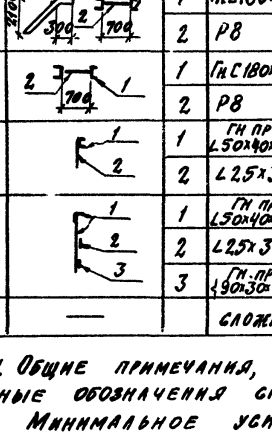 2100
300 2 700
2 Р8
2 700 1
1 ГнС180×
2 Р8
1
2
1 ГН ПР
L50×40×
2 L25×3
1
2
3
1 ГН ПР
L50×40×
2 L25×3
3 ГН.ПР
90×30×
—
СЛОЖ
ОБЩИЕ ПРИМЕЧАНИЯ,
НЫЕ ОБОЗНАЧЕНИЯ С
МИНИМАЛЬНОЕ УСИ